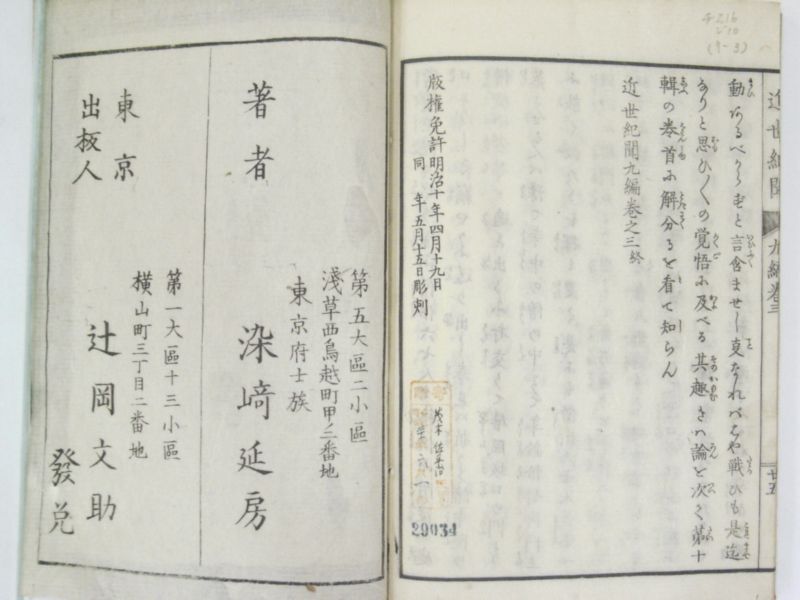 近世紀聞 九編巻三
廿五
動あるべからずと言含ませし夏なれべもや戦ひも是迄
なりと思ひ〱の覚悟ふ及べる其趣きハ論と次く第十
輯の巻首ふ解分るを看て知らん
近世紀聞九編巻之三終
版權免許明治十年四月十九日
同 年五月十五日彫刻
29034
著者
第五大區二小區
淺草西鳥越町甲三番地
東京府士族
染﨑延房
東京
出板人
第一大區十三小區
横山町三丁目二番地
辻岡文助
發兌